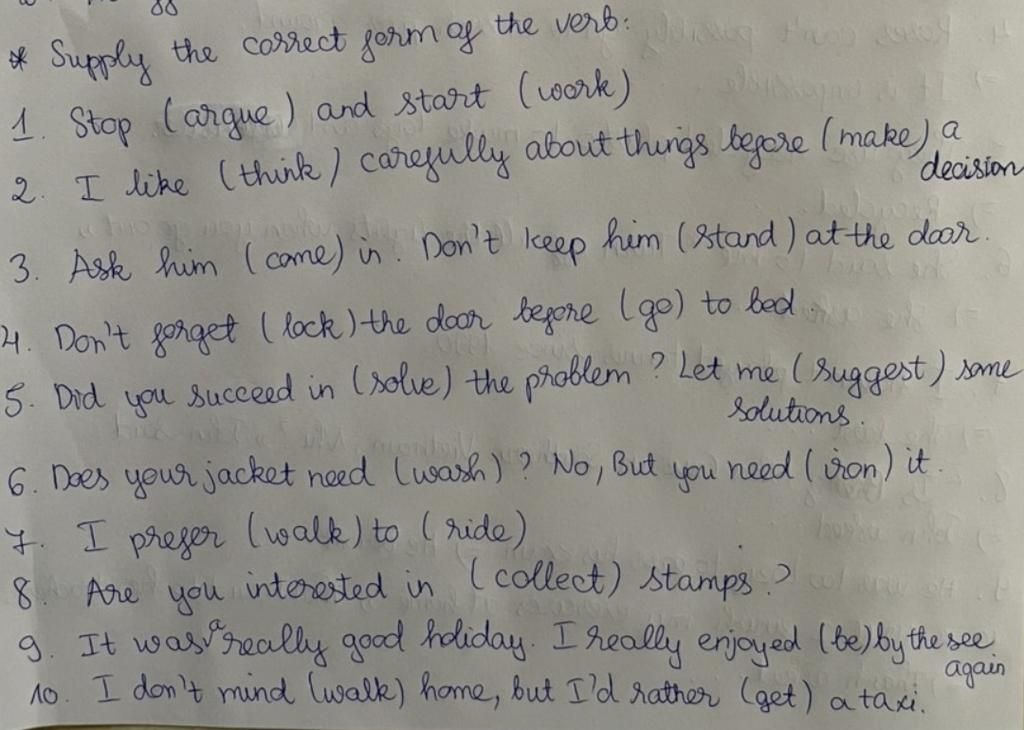 * Supply the correct form of the verb:
1. Stop (argue) and start (work)
2. I like (think) carefully about things before (make) a
decision
3. Ask him (come) in. Don't keep him (stand) at the door.
4. Don't forget (lock) the door before (go) to bed.
5. Did you succeed in (solve) the problem? Let me (suggest) some
solutions.
6. Does your jacket need (wash)? No, But you need (iron) it.
7. I prefer (walk) to (ride)
8. Are you interested in (collect) stamps?
9. It was a really good holiday. I really enjoyed (be) by the see
again
10. I don't mind (walk) home, but I'd rather (get) a taxi.